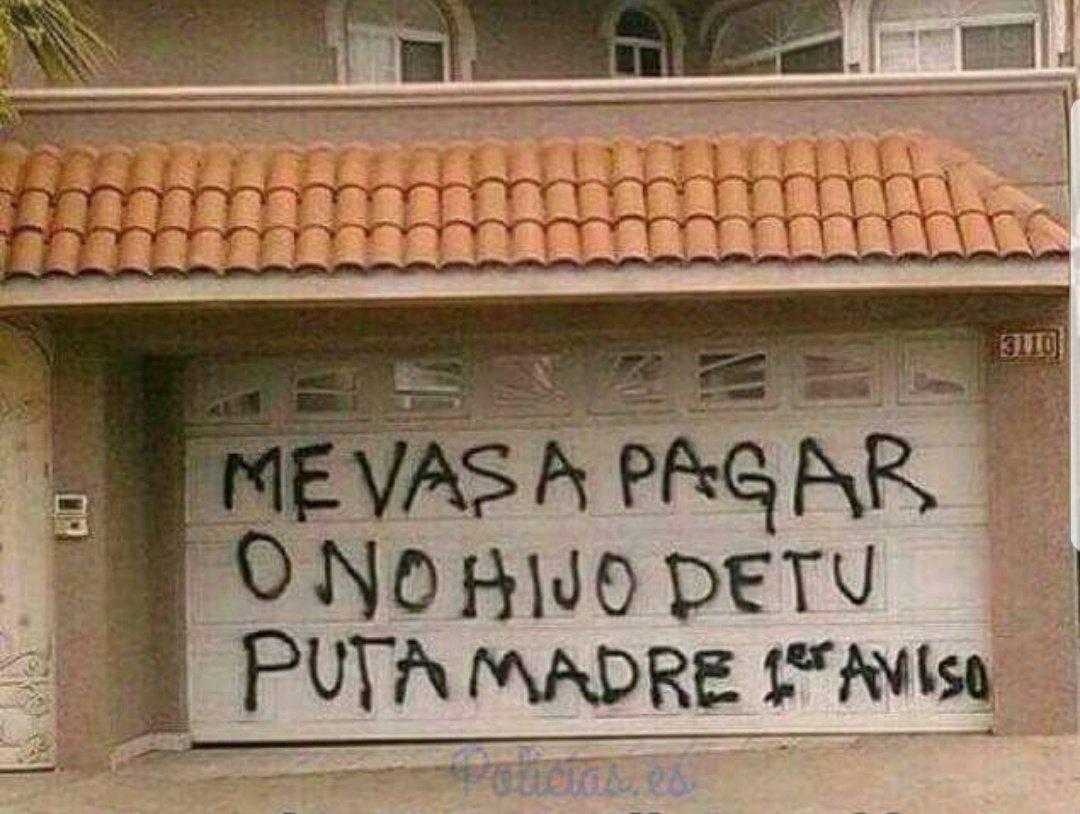 3110
ME VAS A PAGAR
O NO HIJO DE TU
PUTA MADRE 1er AVISO
Policías.es